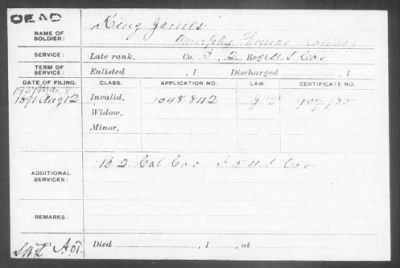 DEAD
NAME OF SOLDIER:
King James
Murphy Thomas
SERVICE:
Late rank, Co. Reg't U.S. Cav
TERM OF SERVICE:
Enlisted , 1 Discharged , 1
DATE OF FILING. CLASS. APPLICATION NO. LAW. CERTIFICATE NO.
Aug 12 Invalid, 1048.842
Widow,
Minor,
ADDITIONAL SERVICES:
2 Cal Cav. U.S. Cav
REMARKS:
Died , 1 , at